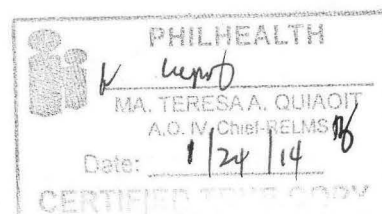 PHILHEALTH
MA. TERESA A. QUIAOIT
A.O. IV, Chief-RELMS
Date: 1/24/14
CERTIFIED TRUE COPY